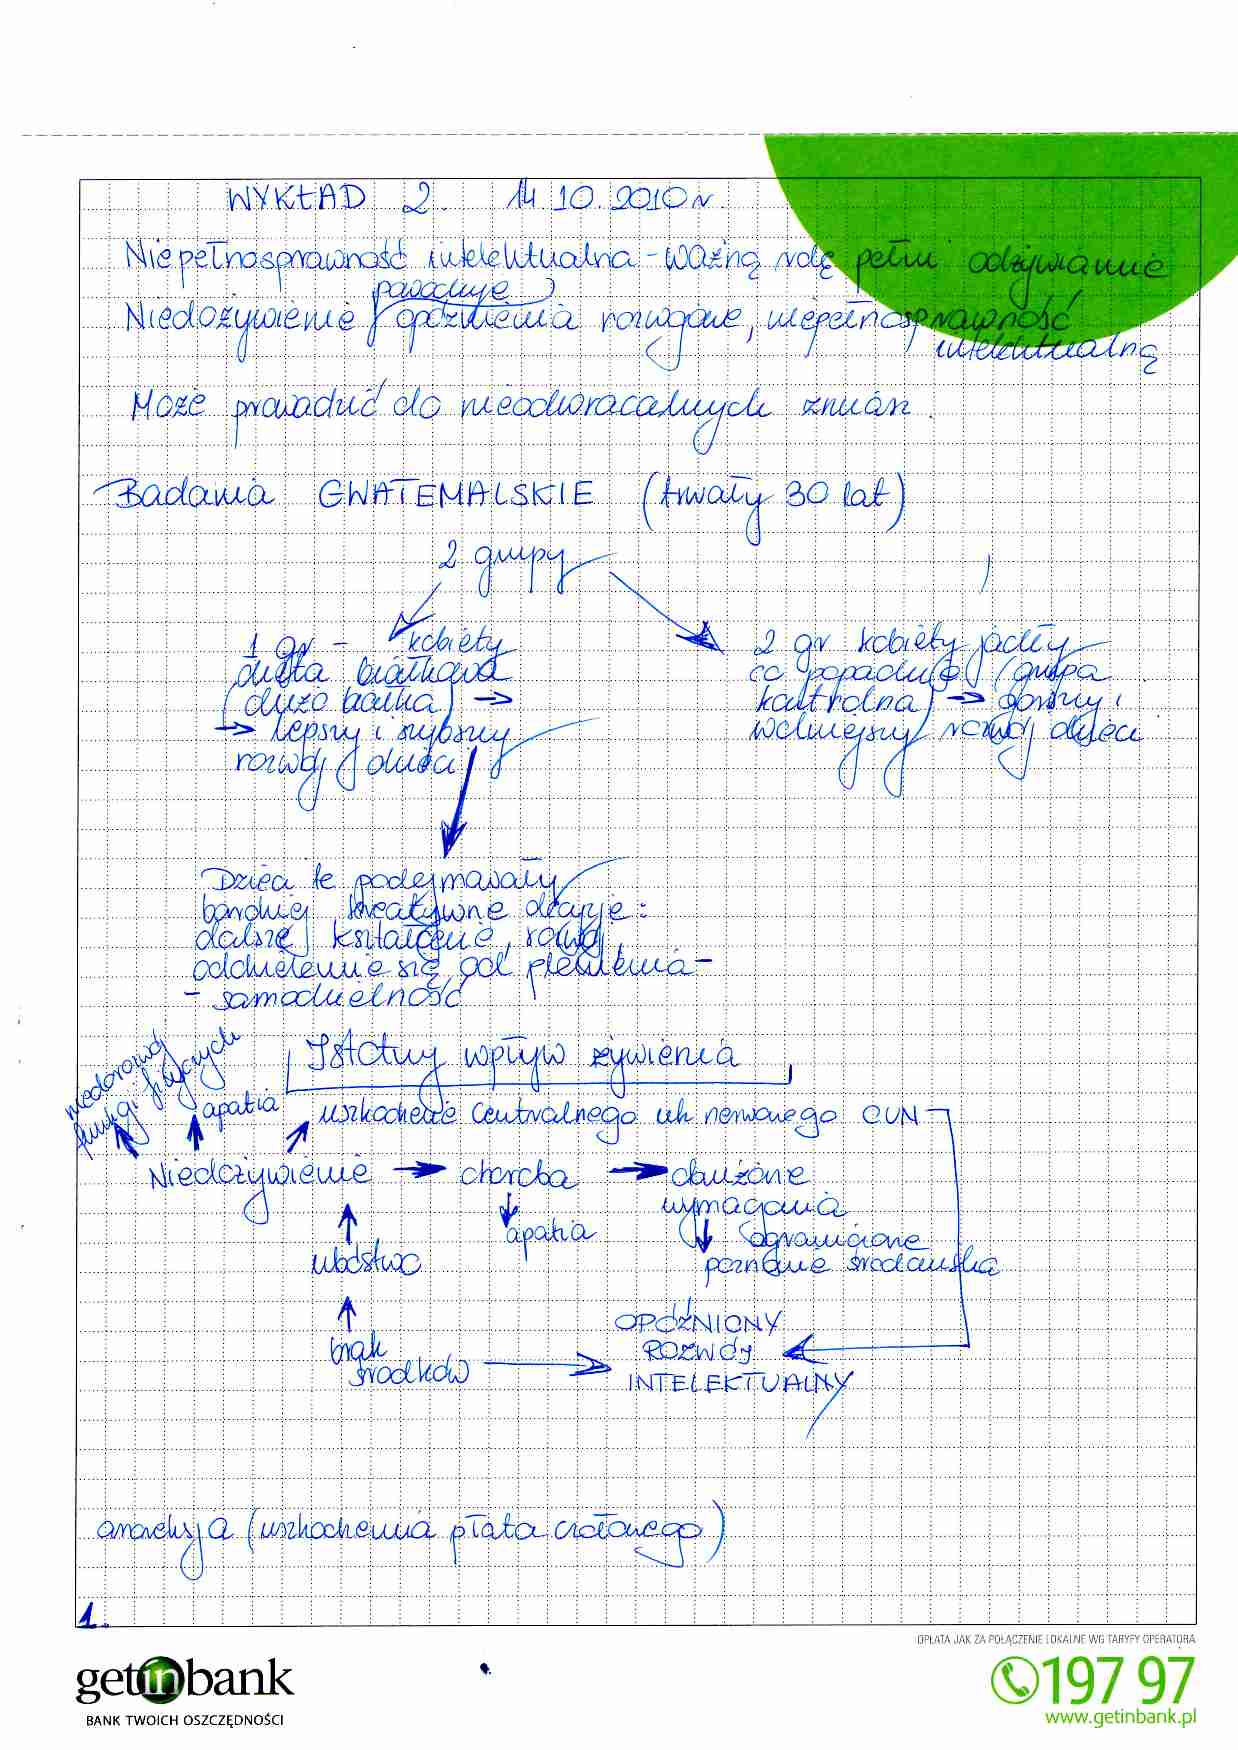 WYKŁAD 2. 14.10.2010 r.
Niepełnosprawność intelektualna - ważną rolę pełni odżywianie
powoduje
Niedożywienie opóźnienia rozwojowe, niepełnosprawność
intelektualną
Może prowadzić do nieodwracalnych zmian.
Badania GWATEMALSKIE (trwały 30 lat)
2 grupy
1 gr - kobiety
dieta białkowa
(dużo białka) →
→ lepszy i szybszy
rozwój dzieci
2 gr kobiety jadły
co popadnie (grupa
kontrolna) → gorszy i
wolniejszy rozwój dzieci
Dzieci te podejmowały
bardziej kreatywne decyzje:
dalsze kształcenie, rozwój,
oddzielenie się od plemienia -
- samodzielność
Istotny wpływ żywienia
niedorozwój
funkcji fizycznych
apatia
uszkodzenie Centralnego ukł nerwowego CUN
Niedożywienie → choroba → obniżone
wymagania
apatia
ograniczone
poznanie środowiska
ubóstwo
brak
środków
OPÓŹNIONY
ROZWÓJ
INTELEKTUALNY
anoreksja (uszkodzenia płata czołowego)
1.
OPŁATA JAK ZA POŁĄCZENIE LOKALNE WG TARYFY OPERATORA
getinbank
BANK TWOICH OSZCZĘDNOŚCI
197 97
www.getinbank.pl